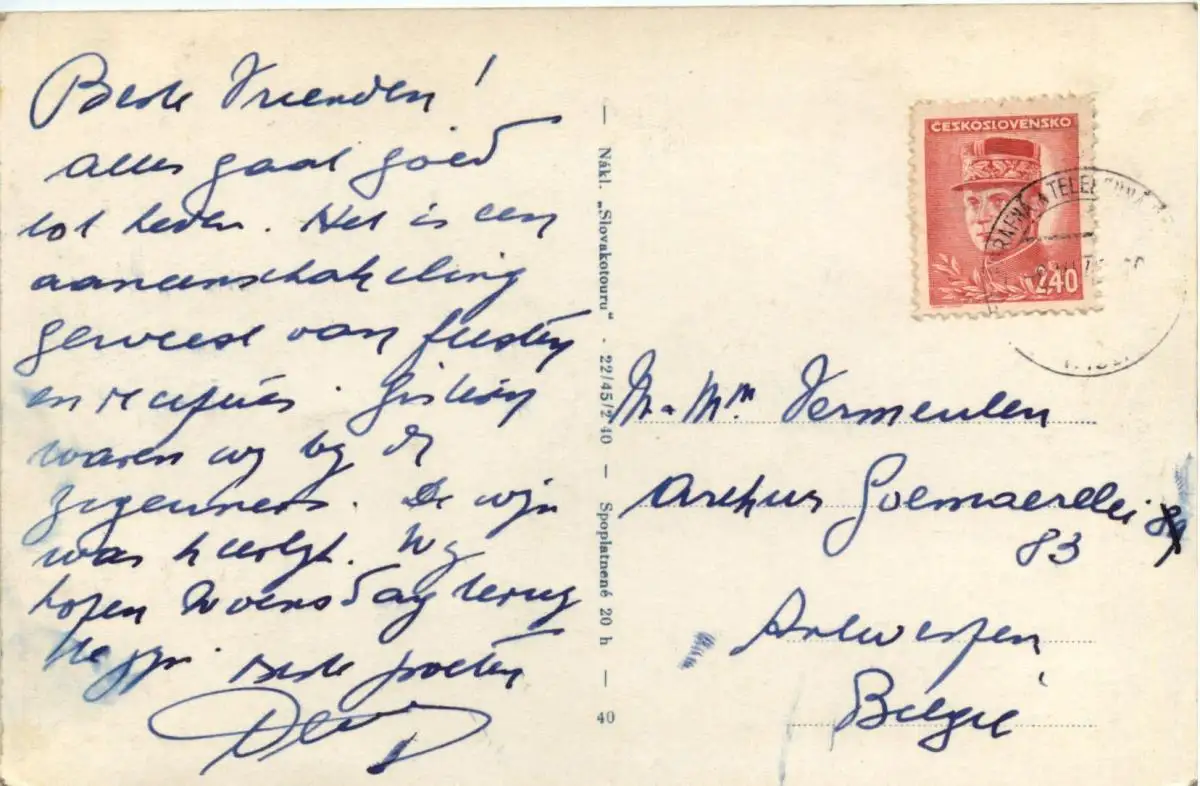 Beste Vrienden!
alles gaat goed
tot heden. Het is een
aaneenschakeling
geweest van feesten
en recepties. Gisteren
waren wy by de
zigeuners. De wyn
was heerlyk. Wy
hopen Woensdag terug
te zyn. Beste groeten
— Nákl. „Slovakotouru" - 22/45/2 40 — Spoplatnené 20 h — 40
ČESKOSLOVENSKO
2,40
M. & Mm Vermeulen
Arthur Goemaerelei
83
Antwerpen
België